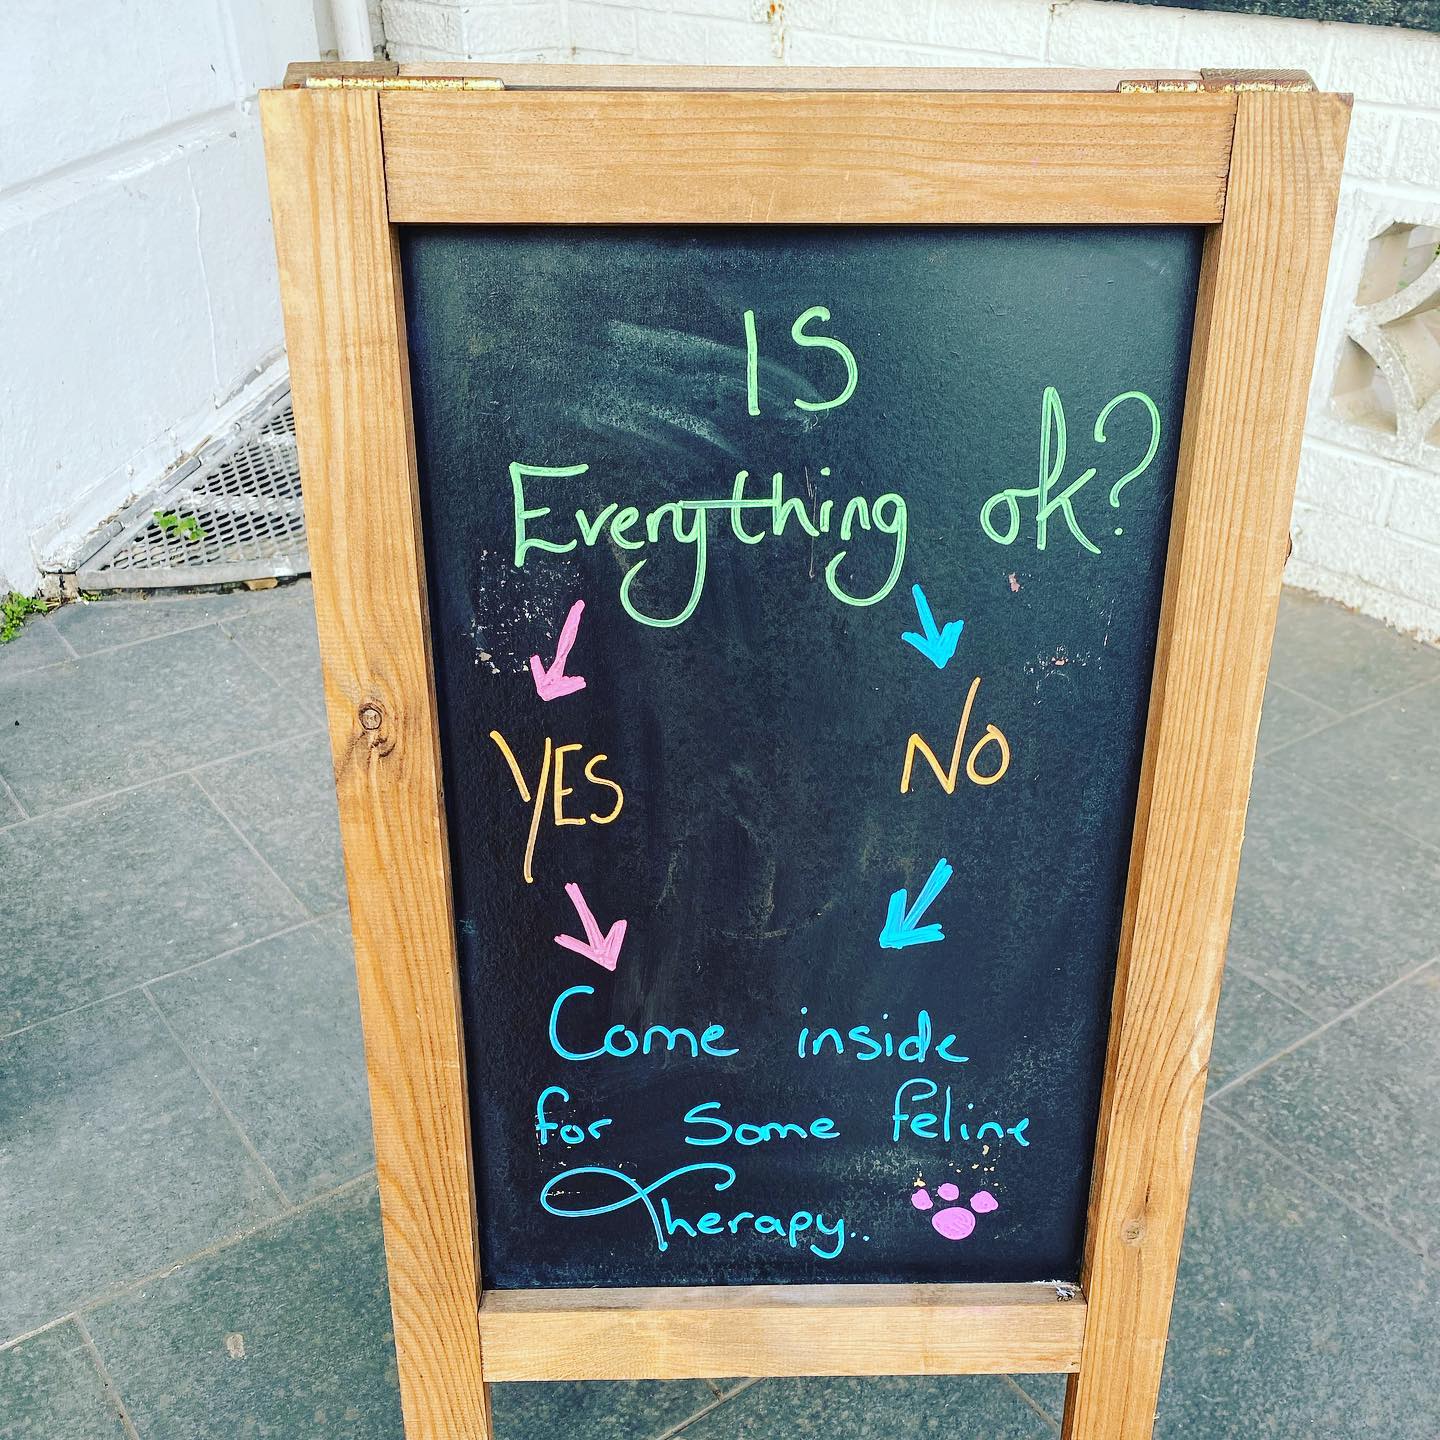 IS
Everything ok?
YES NO
Come inside
for some feline
Therapy..